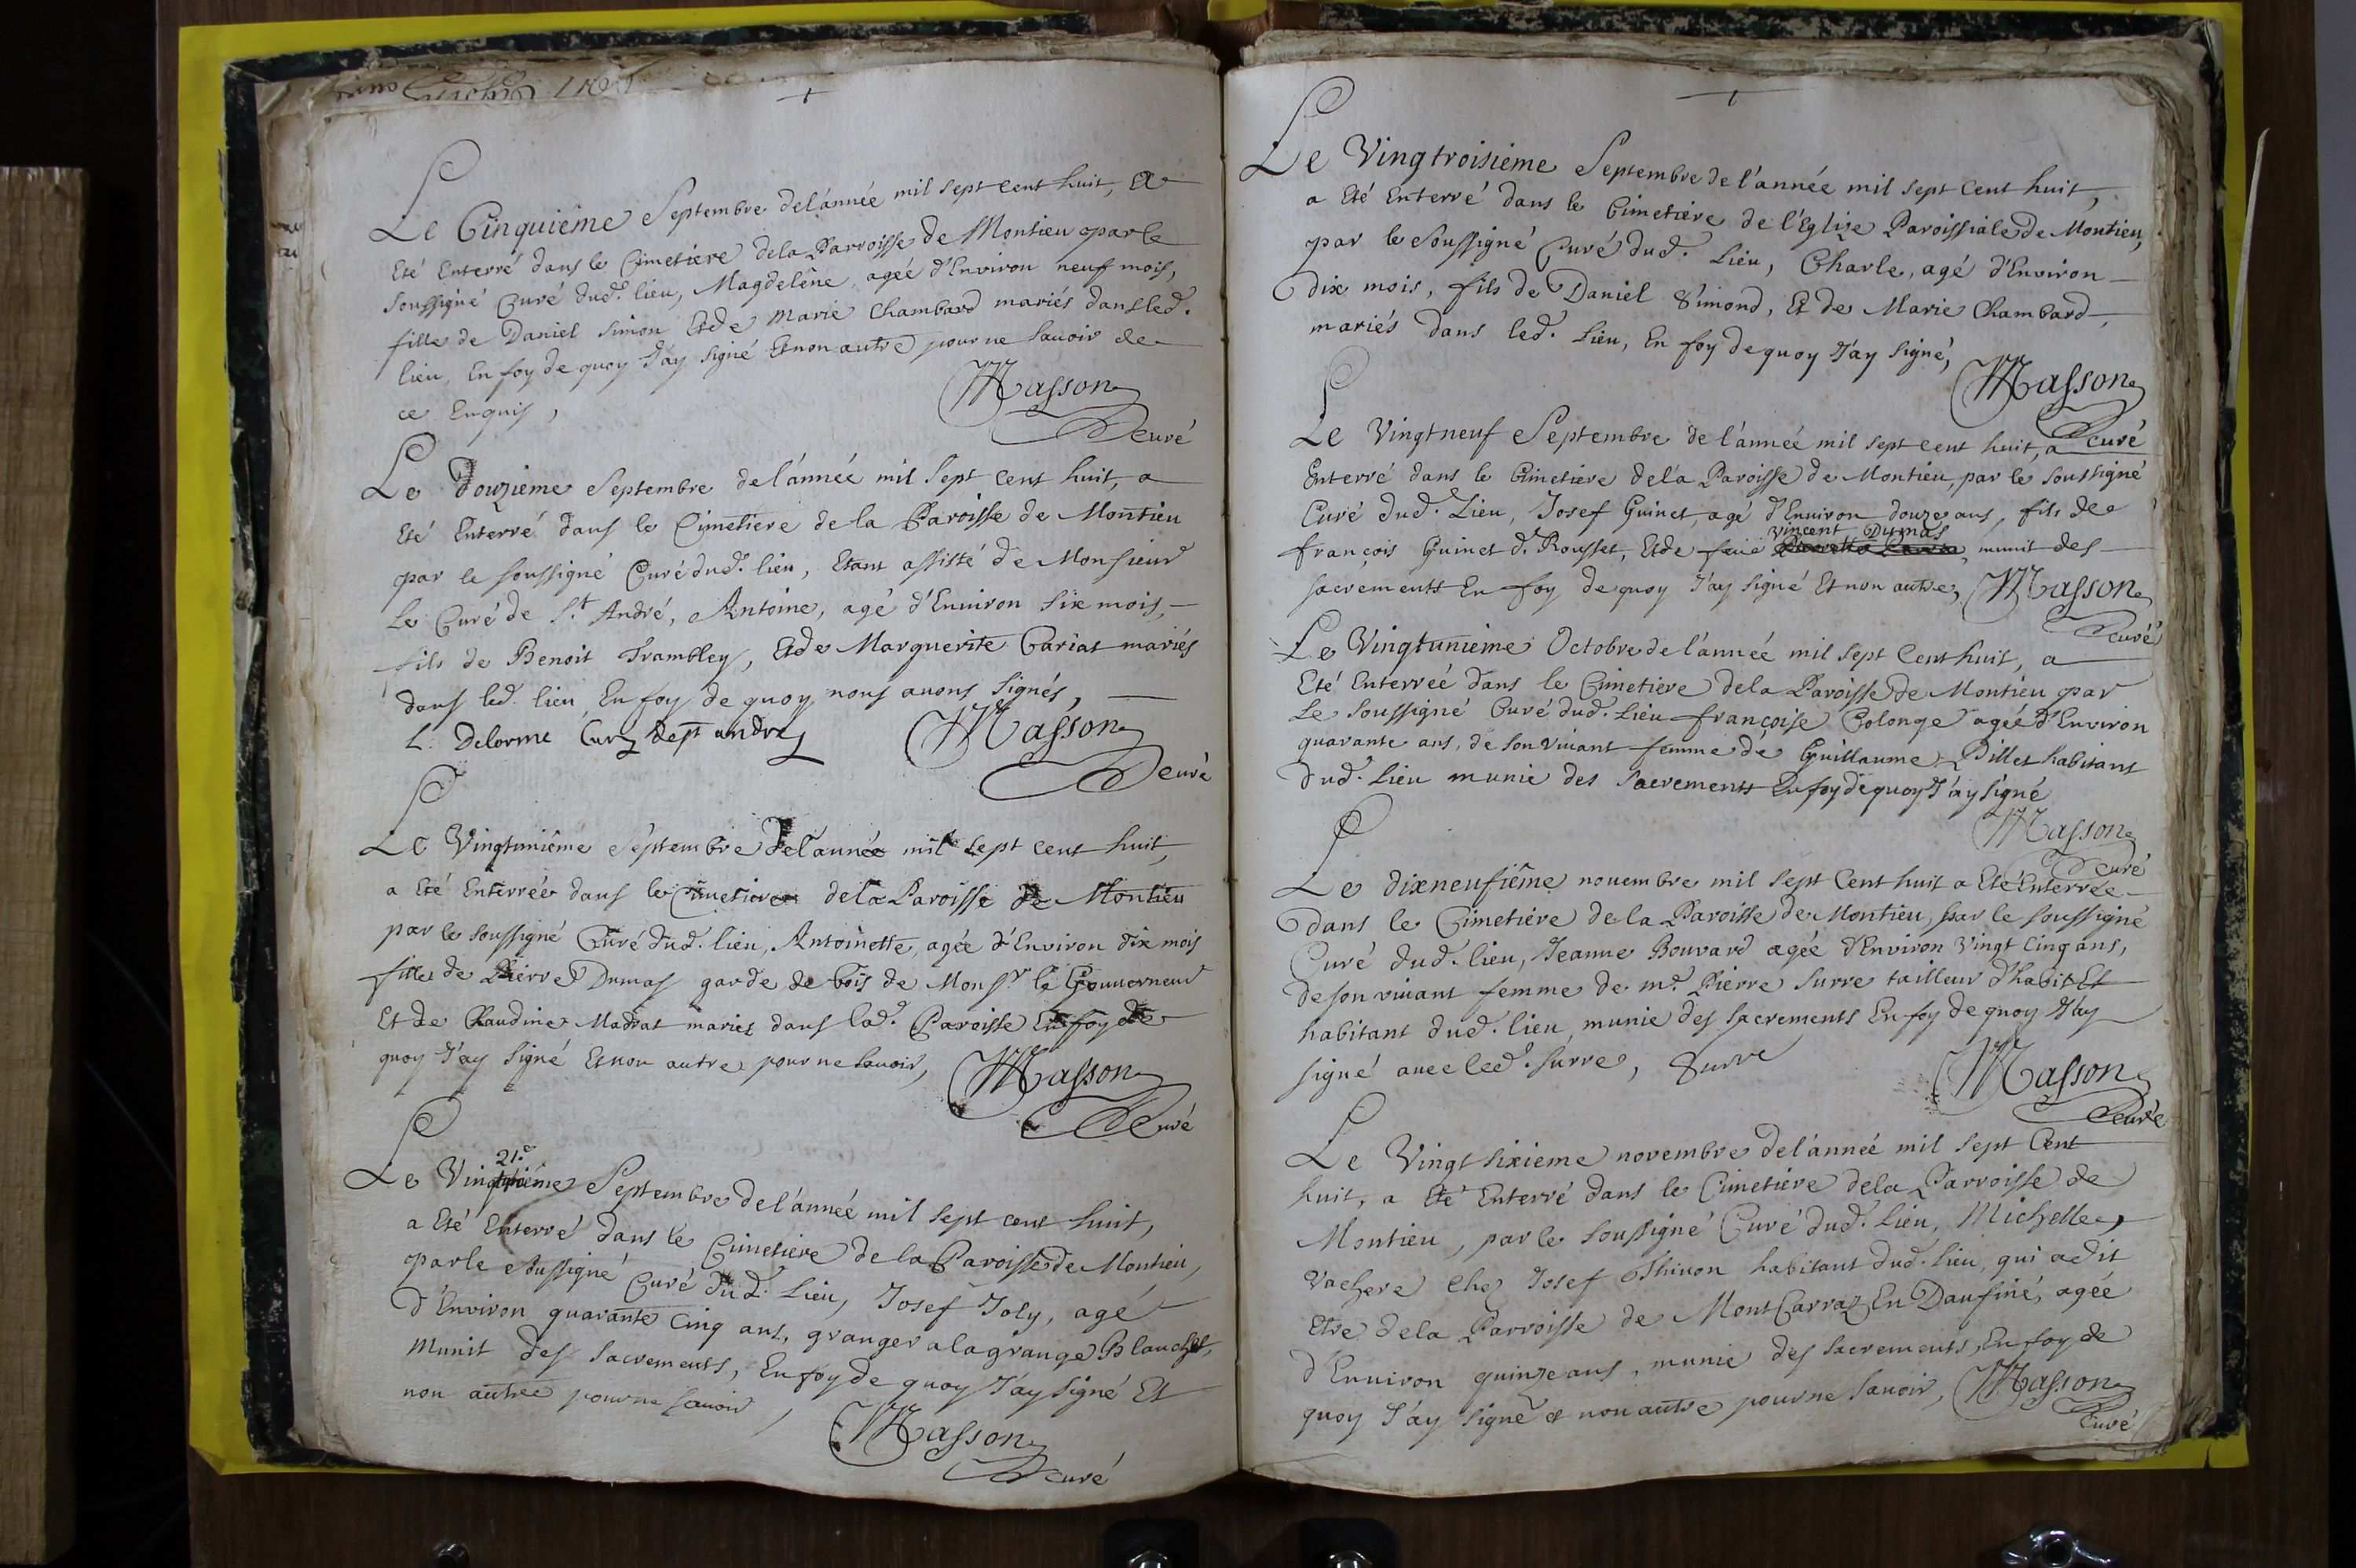 Le Cinquiême Septembre de l'année mil sept cent huit, a
Eté Enterré dans le Cimetiere dela Parroisse de Montieu par le
soussigné Curé dud. lieu, Magdelêne, agée d'Environ neuf mois,
fille de Daniel Simon Et de Marie Chambard mariés dans led.
lieu, En foy de quoy J'ay signé Et non autre pour ne Savoir de
ce Enquis,
Masson
Curé
Le Douzième Septembre de l'année mil sept cent huit, a
Eté Enterré dans le Cimetiere de la Paroisse de Montieu
par le soussigné Curé dud. lieu, Etant assisté de Monsieur
Le Curé de St. André, Antoine, agé d'Enuiron six mois,
fils de Benoit Trambley, Et de Marguerite Cariat mariés
dans led. lieu En foy de quoy nous auons signés,
L. Delorme Curé de st andré
Masson
Curé
Le Vingtuniême Septembre de l'année mil sept cent huit,
a Eté Enterrée dans le Cimetiere dela Paroisse de Montieu
par le soussigné Curé dud. lieu, Antoinette, agée d'Environ dix mois
fille de Pierre Dumas garde de bois de Monsr. le Gouuerneur
Et de Claudine Madrat mariez dans lad. Paroisse En foy de
quoy J'ay signé Et non autre pour ne Savoir,
Masson
Curé
21e
Le Vingtiême Septembre de l'année mil sept cent huit,
a Eté Enterré dans le Cimetiere de la Paroisse de Montieu,
par le soussigné Curé dud. Lieu, Josef Joly, agé
d'Environ quarante Cinq ans, granger a la grange Blanchet,
Munit des sacrements, En foy de quoy J'ay signé Et
non autre pour ne Sauoir,
Masson
Curé
Le Vingtroisiême Septembre de l'année mil sept cent huit,
a Eté Enterré dans le Cimetiere de l'Eglise Paroissiale de Montieu,
par le Soussigné Curé dud. Lieu, Charle, agé d'Environ
dix mois, fils de Daniel Simond, Et de Marie Chambard,
mariés dans led. Lieu, En foy de quoy J'ay signé,
Masson
Curé
Le Vingtneuf Septembre de l'année mil sept cent huit, a
Enterré dans le Cimetiere dela Paroisse de Montieu, par le soussigné
Curé dud. Lieu, Josef Guinet, agé d'Enuiron douze ans, fils de
Vincent Dumas
françois Guinet d. Rousset, Et de feüe munit des
sacrements En foy de quoy J'ay signé Et non autre, Masson
Curé
Le Vingtuniême Octobre de l'année mil sept Cent huit, a
Eté Enterreé dans le Cimetiere dela Paroisse de Montieu par
Le Soussigné Curé dud. Lieu françoise Colonge agée d'Environ
quarante ans, de son viuant femme de Guillaume Pillet habitant
dud. Lieu munie des Sacrements En foy de quoy J'ay signé
Masson
Curé
Le dixneufiême nouembre mil sept Cent huit a Eté Enterrée
dans le Cimetiere de la Paroisse de Montieu, par le soussigné
Curé dud. lieu, Jeanne Bouvard agée d'Environ Vingt Cinq ans,
de son viuant femme de me. Pierre Surre tailleur d'habit Et
habitant dud. lieu munie des sacrements En foy de quoy J'ay
signé auec led. Surre, Surre
Masson
Curé
Le Vingt sixieme novembre de l'année mil sept Cent
huit, a Eté Enterré dans le Cimetiere dela Parroisse de
Montieu, par le soussigné Curé dud. lieu, Michelle,
Vachere Chez Josef Thiuon habitant dud. lieu, qui a dit
Etre dela Parroisse de MontCarraz En Daufiné, agée
d'Enuiron quinze ans, munie des sacrements, En foy de
quoy J'ay signé & non autre pour ne Sauoir, Masson
Curé